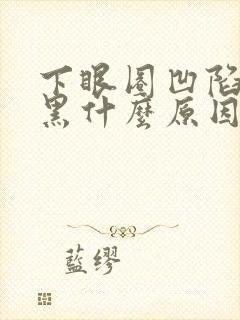 下眼圈凹陷
黑什麼原因
藍繆